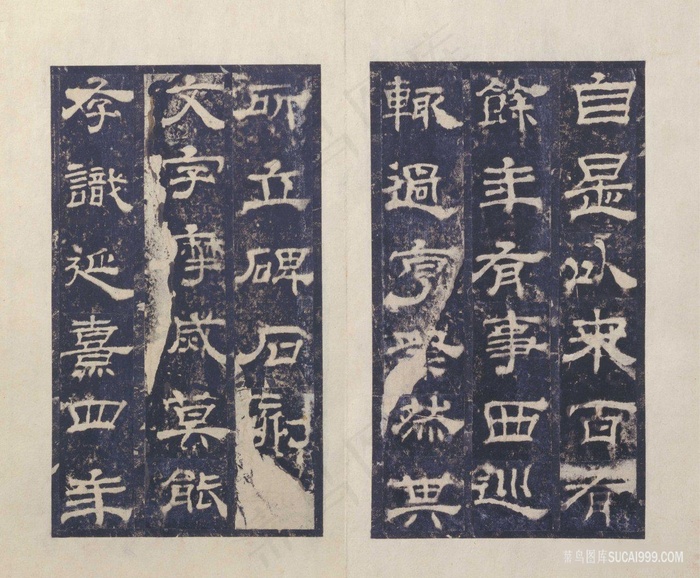 自是以來百有
餘年有事西巡
輒過亨祭然其
所立碑石
文字摩烕莫能
存識延熹四年
菜鸟图库SUCAI999.COM